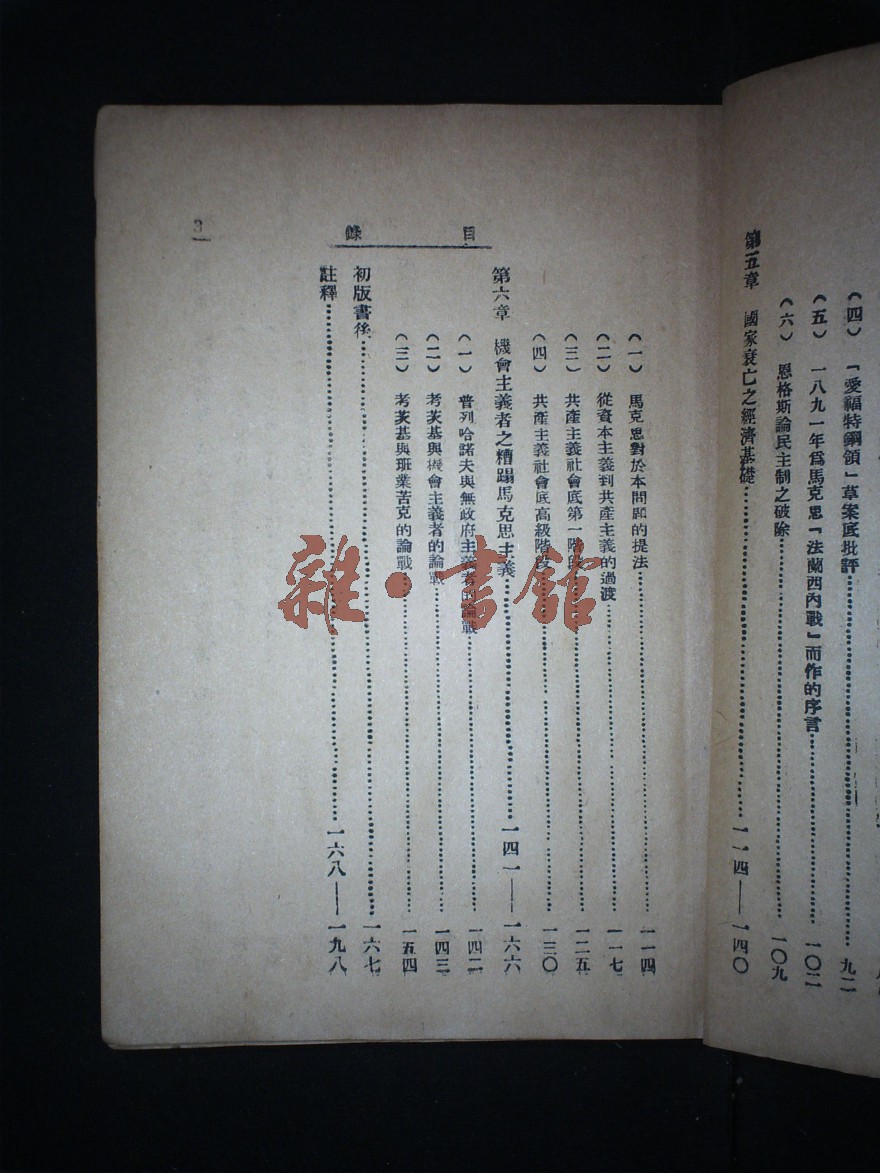 （四） 「愛福特綱領」草案底批評……九二
（五） 一八九一年爲馬克思「法蘭西內戰」而作的序言……一〇二
（六） 恩格斯論民主制之破除……一〇九
第五章 國家衰亡之經濟基礎……一一四——一四〇
目錄
（一） 馬克思對於本問題的提法……一一四
（二） 從資本主義到共產主義的過渡……一一七
（三） 共產主義社會底第一階段……一二五
（四） 共產主義社會底高級階段……一三〇
第六章 機會主義者之糟蹋馬克思主義……一四一——一六六
（一） 普列哈諾夫與無政府主義者的論戰……一四二
（二） 考茨基與機會主義者的論戰……一四三
（三） 考茨基與班業苦克的論戰……一五四
初版書後……一六七
註釋……一六八——一九八
3
雜·書館